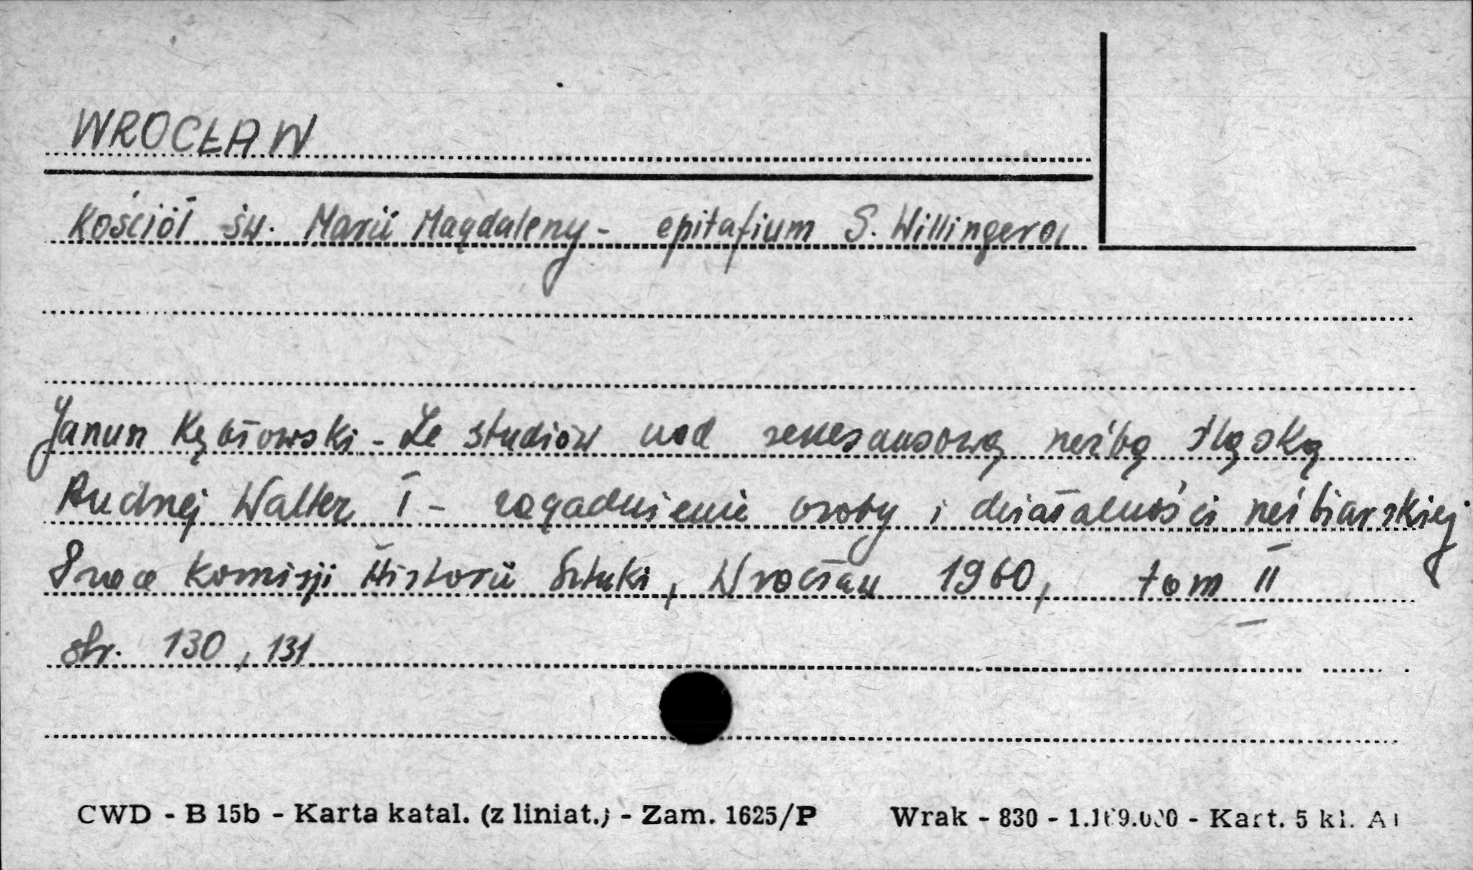 WROCŁAW
Kościół św. Marii Magdaleny - epitafium S. Willingera
Janusz Kębłowski - Ze studiów nad renesansową rzeźbą śląską
Andrzej Walter I - zagadnienie osoby i działalności rzeźbiarskiej
Prace Komisji Historii Sztuki, Wrocław 1960, tom II
str. 130, 131
CWD - B 15b - Karta katal. (z liniat.) - Zam. 1625/P Wrak - 830 - - Kart. 5 kl. A1